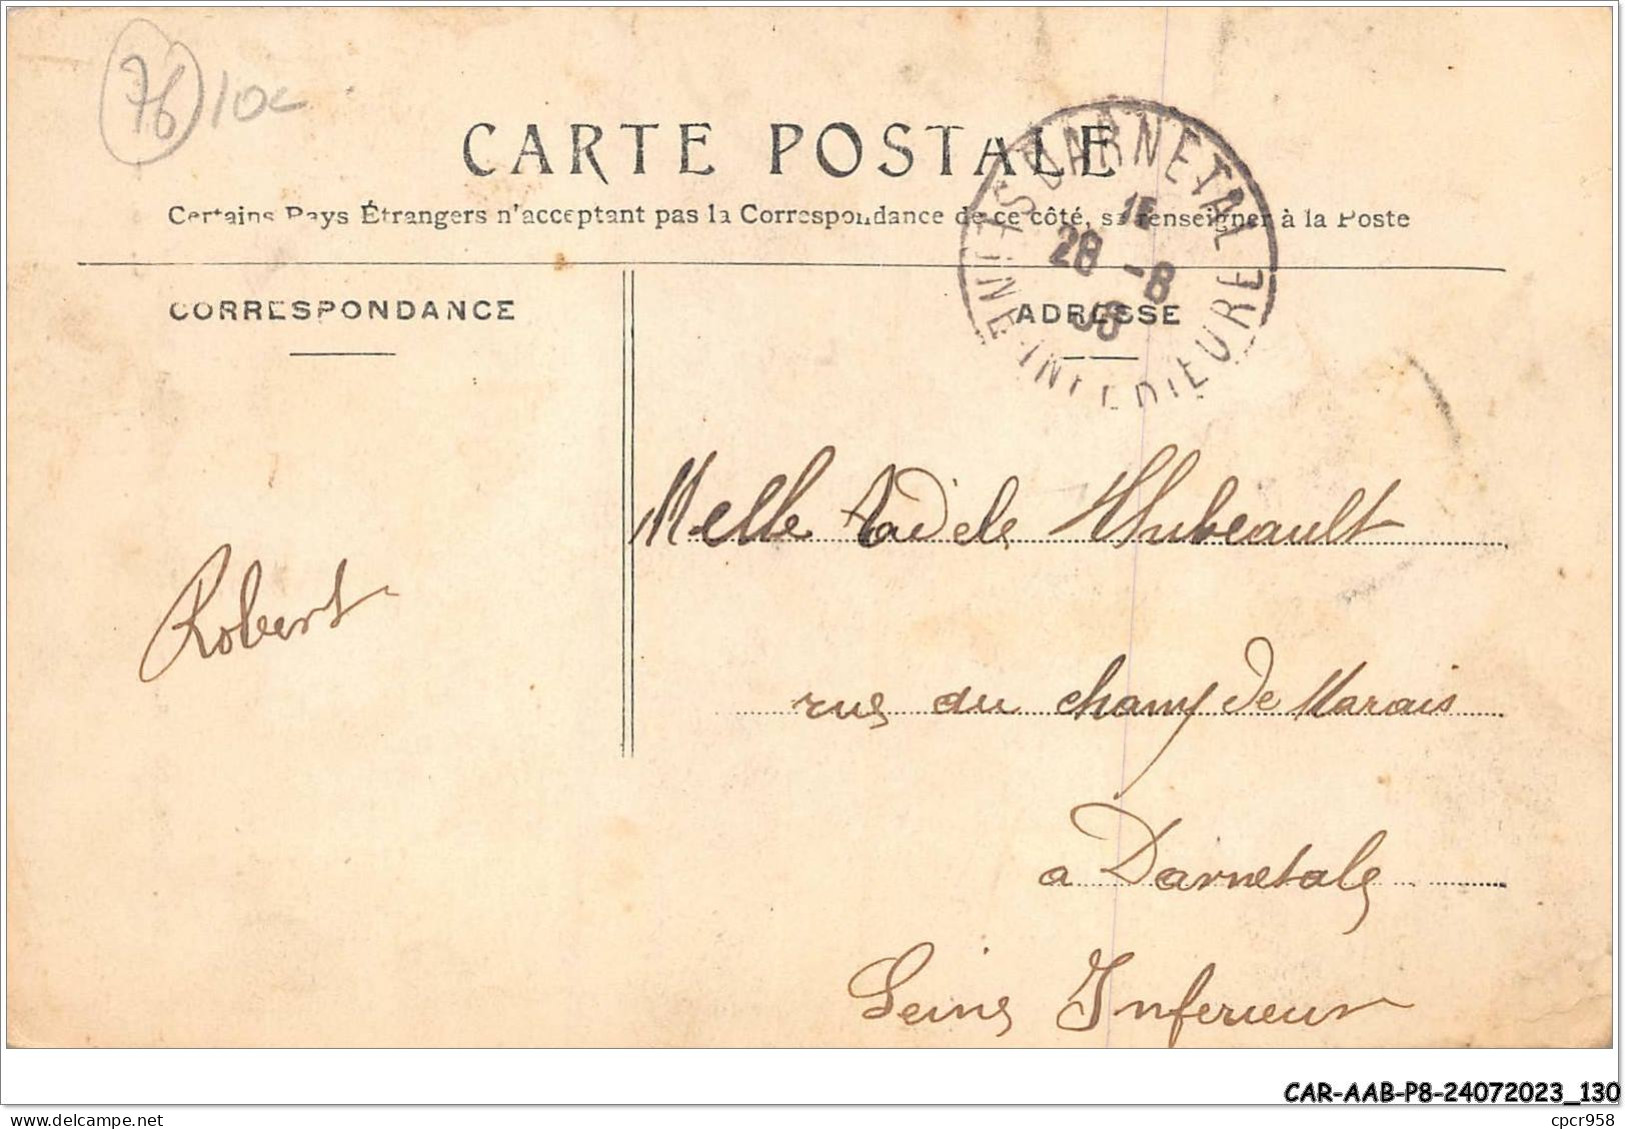 76 10c
CARTE POSTALE
Certains Pays Étrangers n'acceptant pas la Correspondance de ce côté, se renseigner à la Poste
CORRESPONDANCE
ADRESSE
DARNETAL
15
28 -8
06
SEINE-INFÉRIEURE
Melle Adèle Thubeault
Robert
rue du champ de Marais
a Darnetale
Seine Inferieur
CAR-AAB-P8-24072023_130
www.delcampe.net
cpcr958